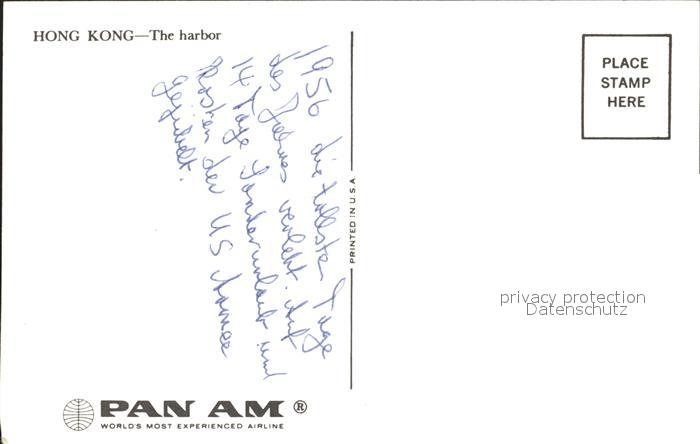 HONG KONG—The harbor
1956 die tollsten Tage
des Jahres verlebt. Auf
14 Tage Sonderurlaub und
Kosten der US Armee
gejubelt.
PRINTED IN U.S.A.
PLACE
STAMP
HERE
privacy protection
Datenschutz
PAN AM ®
WORLD'S MOST EXPERIENCED AIRLINE